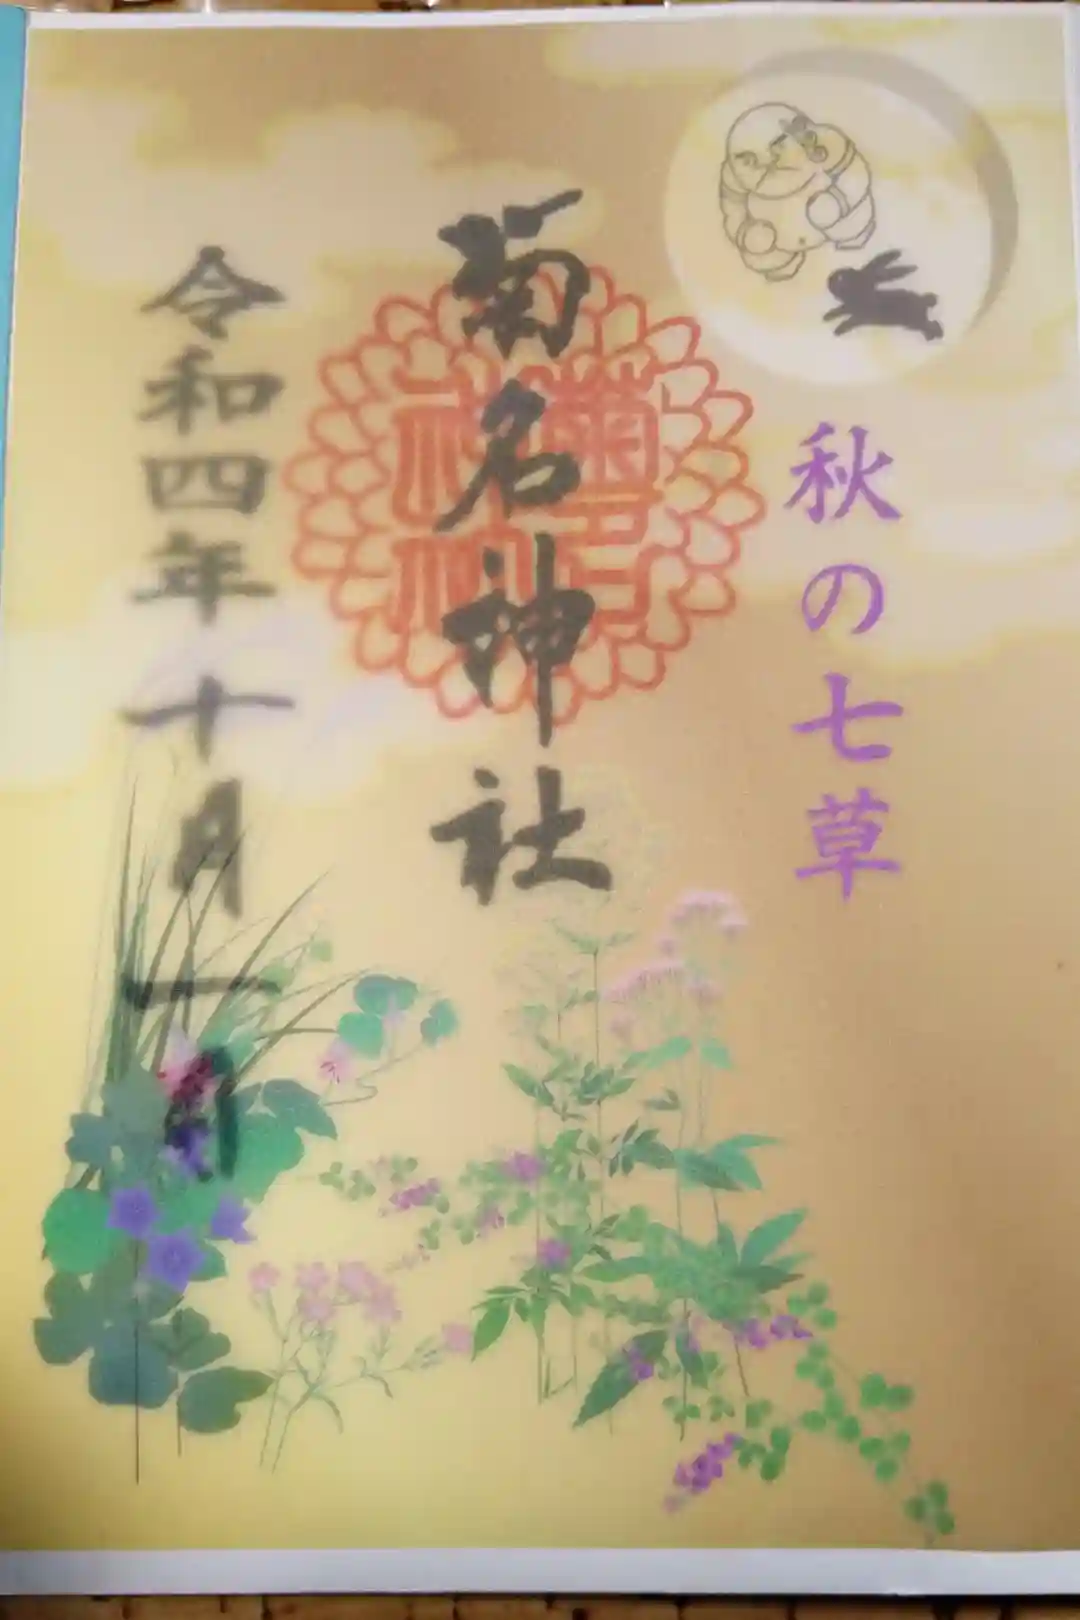 秋の七草
菊名神社
菊名神社
令和四年十月一日